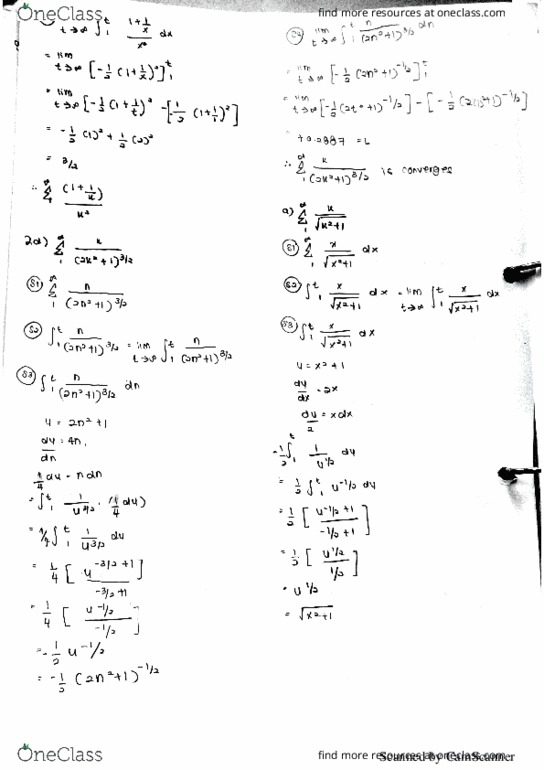 OneClass
find more resources at oneclass.com
lim t→∞ ∫₁ᵗ (1+1/x)/x² dx
= lim t→∞ [-1/2 (1+1/x)²]₁ᵗ
= lim t→∞ [-1/2 (1+1/t)² - [-1/2 (1+1/1)²]
= -1/2 (1)² + 1/2 (2)²
= 3/2
∴ ∞ Σ 1 (1+1/k)/k²
2d) ∞ Σ 1 k/(2k²+1)^3/2
S1 ∞ Σ 1 n/(2n²+1)^3/2
S2 ∫₁ᵗ n/(2n²+1)^3/2 = lim t→∞ ∫₁ᵗ n/(2n²+1)^3/2
S3 ∫₁ᵗ n/(2n²+1)^3/2 dn
u = 2n²+1
du/dn = 4n
1/4 du = n dn
= ∫₁ᵗ 1/u^3/2 · (1/4 du)
= 1/4 ∫₁ᵗ 1/u^3/2 du
= 1/4 [u^-3/2+1 / -3/2+1]
= 1/4 [u^-1/2 / -1/2]
= -1/2 u^-1/2
= -1/2 (2n²+1)^-1/2
S4 lim t→∞ ∫₁ᵗ n/(2n²+1)^3/2 dn
= lim t→∞ [-1/2 (2n²+1)^-1/2]₁ᵗ
= lim t→∞ [-1/2 (2t²+1)^-1/2] - [-1/2 (2(1)²+1)^-1/2]
+0.2887 = L
∴ ∞ Σ 1 k/(2k²+1)^3/2 is converges
a) ∞ Σ 1 k/√k²+1
S1 ∞ Σ 1 x/√x²+1 dx
S2 ∫₁ᵗ x/√x²+1 dx = lim t→∞ ∫₁ᵗ x/√x²+1 dx
S3 ∫₁ᵗ x/√x²+1 dx
u = x²+1
du/dx = 2x
du/2 = x dx
= 1/2 ∫₁ᵗ 1/u^1/2 du
= 1/2 ∫₁ᵗ u^-1/2 du
= 1/2 [u^-1/2+1 / -1/2+1]
= 1/2 [u^1/2 / 1/2]
= u^1/2
= √x²+1
OneClass
find more resources at oneclass.com
Scanned by CamScanner